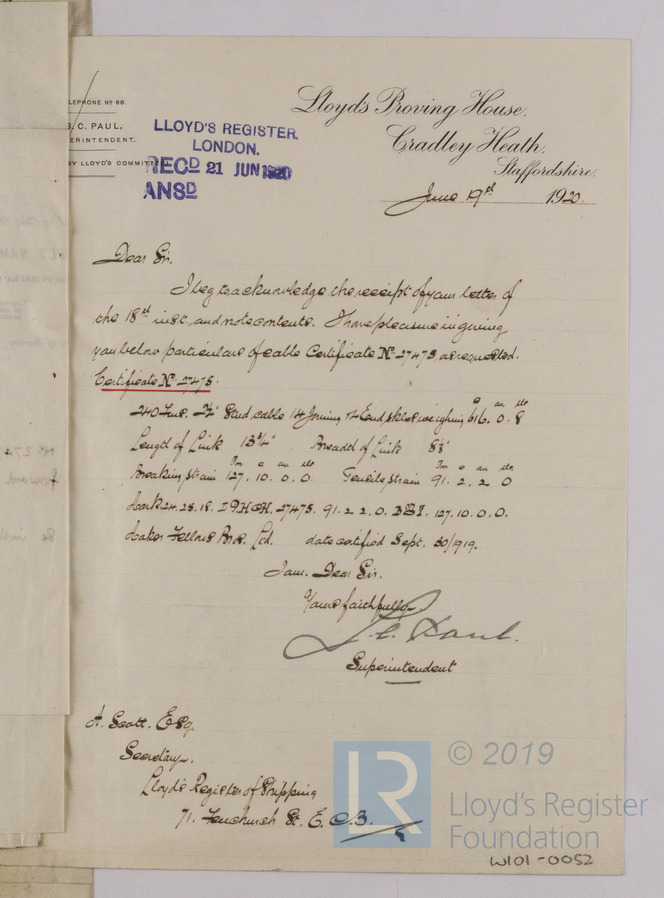 LEPHONE Nº 68.
S. C. PAUL,
ERINTENDENT.
BY LLOYD'S COMMITTEE
LLOYD'S REGISTER,
LONDON.
RECD 21 JUN 1920
ANSD
Lloyd's Proving House,
Cradley Heath,
Staffordshire.
June 19st 1920.
Dear Sir,
I beg to acknowledge the receipt of your letter of
the 18st inst, and note contents. I have pleasure in giving
you below particulars of cable Certificate Nº 27475 as requested.
Certificate Nº 27475.
Stud cable 14 Joining, 4 End, weighing 616. 0. 8
Length of Link 13½" Breadth of Link
Breaking strain 127. 10. 0. 0. Tensile strain 91. 2. 2. 0
27475. 91. 2. 2. 0. 127. 10. 0. 0.
Fellows Bros. Ltd. date certified Sept. 30/1919.
I am, Dear Sir,
Yours faithfully,
Paul.
Superintendent
A. Scott. Esq.
Secretary.
Lloyd's Register of Shipping
71. Fenchurch St. E. C. 3.
LR
© 2019
Lloyd's Register
Foundation
W101-0052